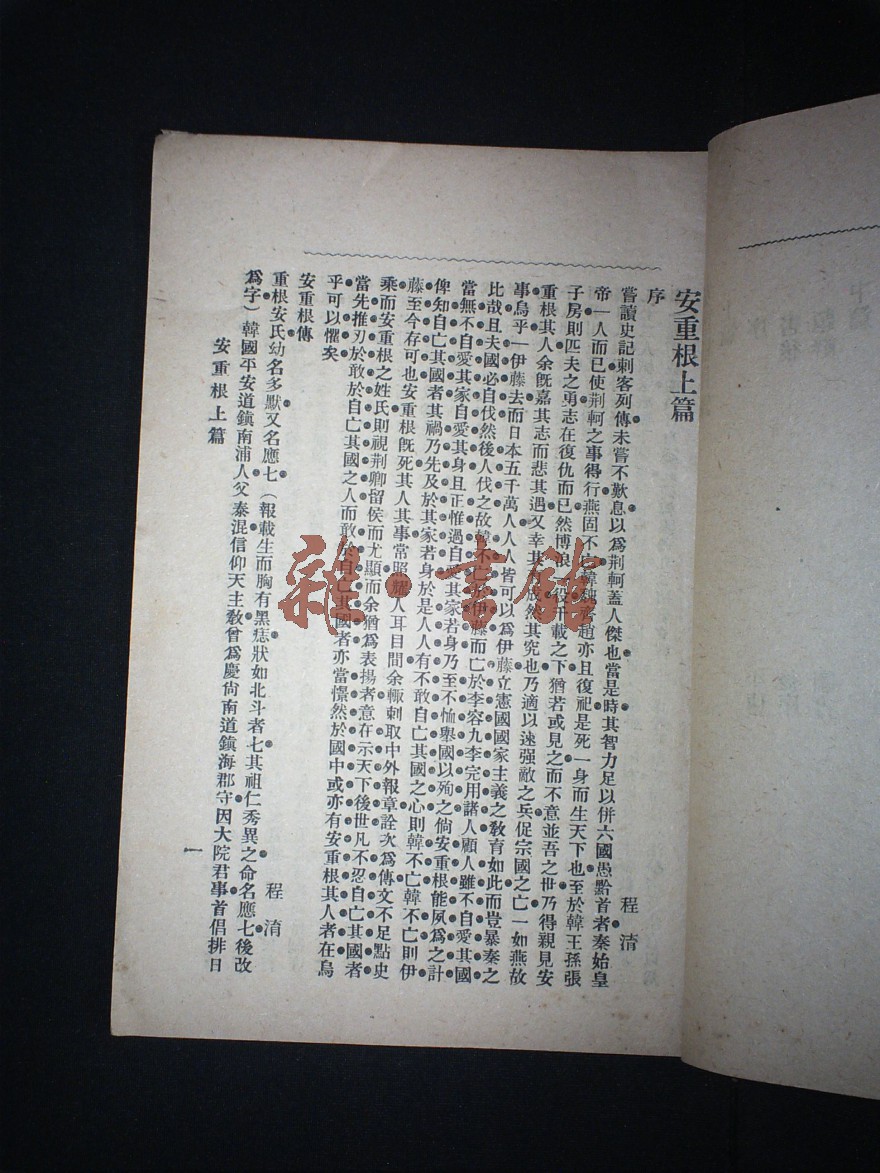 安重根上篇
序
程淯
嘗讀史記刺客列傳未嘗不歎息以爲荆軻蓋人傑也當是時其智力足以併六國愚黔首者秦始皇
帝一人而已使荆軻之事得行燕固不亡韓魏齊趙亦且復祀是死一身而生天下也至於韓王孫張
子房則匹夫之勇志在復仇而已然博浪一役千載之下猶若或見之而不意並吾之世乃得親見安
重根其人余旣嘉其志而悲其遇又幸其有成然其究也乃適以速强敵之兵促宗國之亡一如燕故
事烏乎一伊藤去而日本五千萬人人人皆可以爲伊藤立憲國國家主義之敎育如此而豈暴秦之
比哉且夫國必自伐然後人伐之故韓不亡於伊藤而亡於李容九李完用諸人顧人雖不自愛其國
當無不自愛其家自愛其身且正惟過自愛其家若身乃至不恤舉國以殉之倘安重根能夙爲之計
俾知自亡其國者其禍乃先及於其家若身於是人人有不敢自亡其國之心則韓不亡韓不亡則伊
藤至今存可也安重根旣死其人其事當照耀人耳目間余輒剌取中外報章詮次爲傳文不足點史
乘而安重根之姓氏則視荆卿留侯而尤顯而余猶爲表揚者意在示天下後世凡不忍自亡其國者
當先推刃於敢於自亡其國之人而敢於自亡其國者亦當憬然於國中或亦有安重根其人者在烏
乎可以懼矣
安重根傳
程淯
重根安氏幼名多默又名應七（報載生而胸有黑痣狀如北斗者七其祖仁秀異之命名應七後改
爲字）韓國平安道鎭南浦人父泰混信仰天主敎曾爲慶尙南道鎭海郡守因大院君事首倡排日
安重根上篇
一
雜·書館